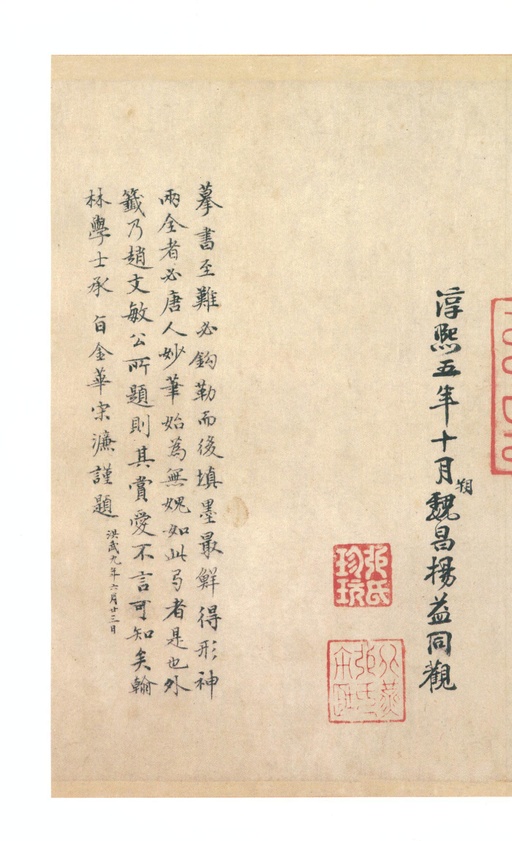 淳熙五年十月朔魏昌揚益同觀
張氏珍玩
摹書至難必鈎勒而後填墨最鮮得形神
兩全者必唐人妙筆始為無媿如此弓者是也外
籤乃趙文敏公所題則其賞愛不言可知矣翰
林學士承旨金華宋濂謹題
洪武九年六月廿三日